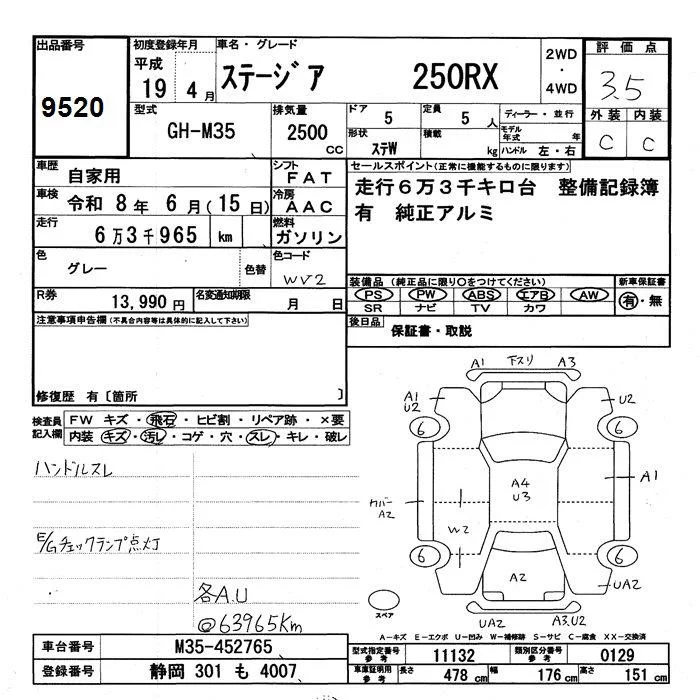 出品番号
9520
初度登録年月
平成
19 4月
車名・グレード
ステージア 250RX
2WD
・
4WD
評価点
3.5
外装 内装
C C
型式
GH-M35
排気量
2500 cc
ドア
5
定員
5 人
形状
ステW
積載
kg
ディーラー・並行
モデル年式 年
ハンドル 左・右
車歴
自家用
シフト
FAT
車検
令和 8年 6月(15日)
冷房
AAC
走行
6万3千965 km
燃料
ガソリン
色
グレー
色替
色コード
WV2
R券
13,990円
名変通知期限
月 日
セールスポイント(正常に機能するものに限ります)
走行6万3千キロ台 整備記録簿
有 純正アルミ
装備品(純正品に限り○をつけてください)
PS PW ABS エアB AW
SR ナビ TV カワ
新車保証書
有・無
後日品
保証書・取説
注意事項申告欄(不具合内容等は具体的に記入して下さい)
修復歴 有〔箇所 〕
検査員記入欄
FW キズ・飛石・ヒビ割・リペア跡・×要
内装 キズ・汚レ・コゲ・穴・スレ・キレ・破レ
ハンドルスレ
E/Gチェックランプ点灯
各A.U
@63965Km
A1 下スリ A3
A1
U2
U2
6 6
A4
U3
A1
カバー
A2
W2
6 6
A2
UA2
スペア
UA2 A3.U2
A-キズ E-エクボ U-凹み W-補修跡 S-サビ C-腐食 XX-交換済
車台番号
M35-452765
登録番号
静岡 301 も 4007
型式指定番号 参考
11132
類別区分番号 参考
0129
車庫証明用 参考
長さ 478 cm 幅 176 cm 高さ 151 cm